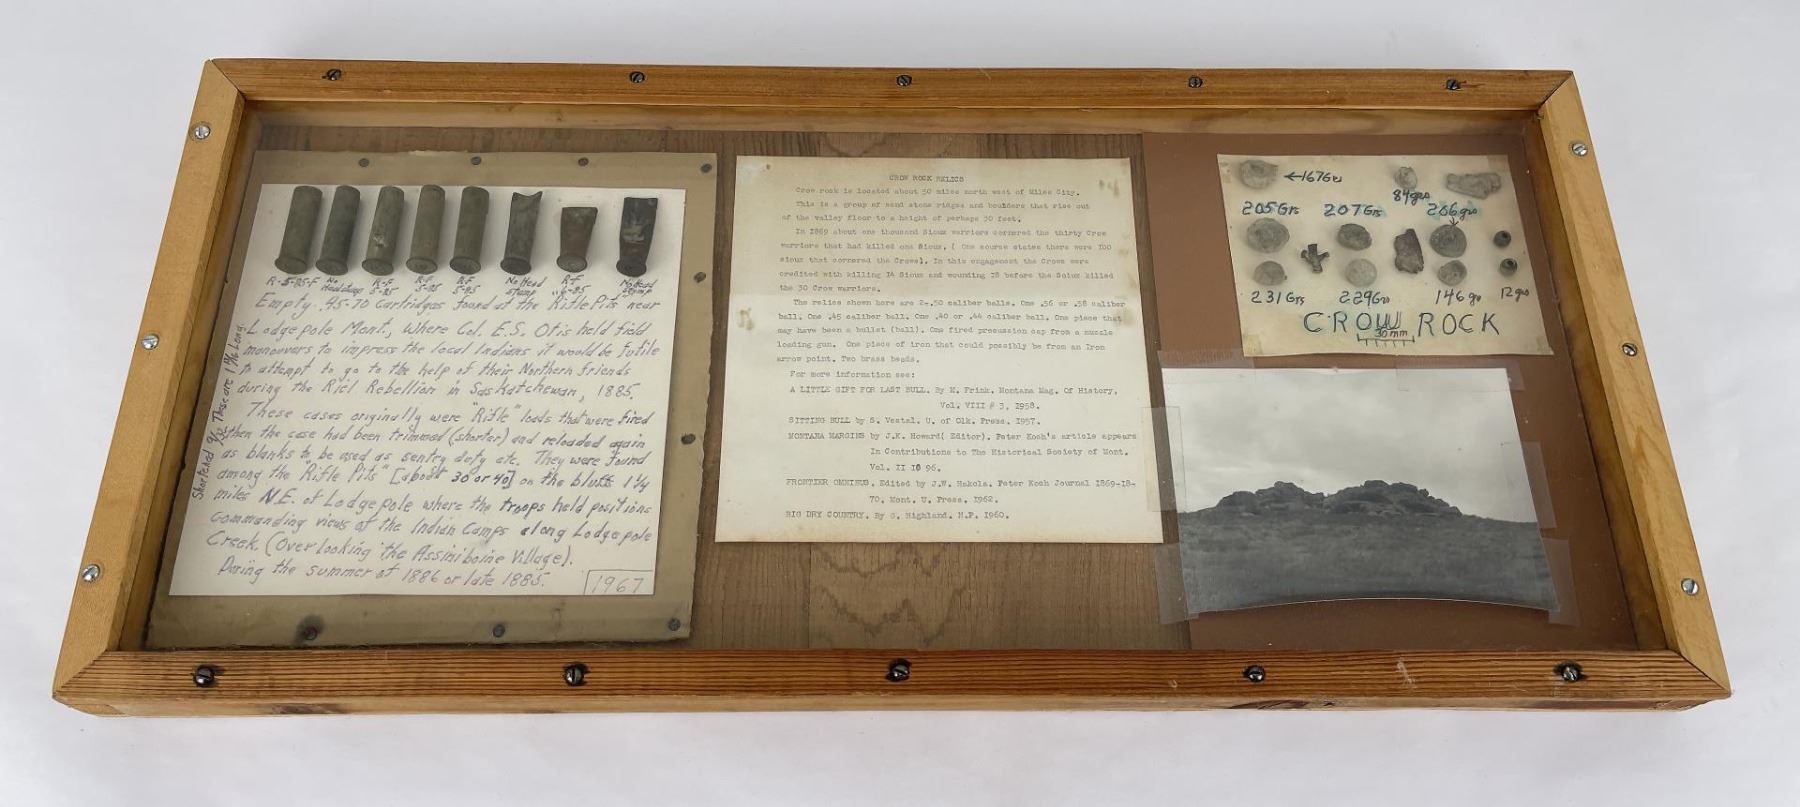 R-5-85-F
No Headstamp
R-F 5-85
R-F 5-85
R-F 5-85
No Head stamp
R-F 6-85
No Head stamp
Empty .45-70 Cartridges found at the "Rifle Pits" near
Lodgepole Mont., where Col. E.S. Otis held field
manouvers to impress the local Indians it would be futile
to attempt to go to the help of their Northern friends
during the Riel Rebellion in Saskatchewan, 1885.
These cases originally were "Rifle" loads that were fired
then the case had been trimmed (shorter) and reloaded again
as blanks to be used as sentry duty etc. They were found
among the "Rifle Pits" [about 30 or 40] on the bluff 1 1/4
miles N.E. of Lodgepole where the troops held positions
commanding views of the Indian Camps along Lodgepole
Creek. (Overlooking the Assiniboine Village).
During the summer of 1886 or late 1885.
1967
Shortened 9/32 These are 1 13/16 Long.
CROW ROCK RELICS
Crow rock is located about 50 miles north west of Miles City.
This is a group of sand stone ridges and boulders that rise out
of the valley floor to a height of perhaps 30 feet.
In 1869 about one thousand Sioux warriors cornered the thirty Crow
warriors that had killed one Sioux. ( One source states there were 100
sioux that cornered the Crows). In this engagement the Crows were
credited with killing 14 Sioux and wounding 18 before the Soiux killed
the 30 Crow warriors.
The relics shown here are 2-.50 caliber balls. One .56 or .58 caliber
ball. One .45 caliber ball. One .40 or .44 caliber ball. One piece that
may have been a bullet (ball). One fired precussion cap from a muzzle
loading gun. One piece of iron that could possibly be from an Iron
arrow point. Two brass beads.
For more information see:
A LITTLE GIFT FOR LAST BULL. By M. Frink. Montana Mag. Of History,
Vol. VIII # 3, 1958.
SITTING BULL by S. Vestal. U. of Olk. Press. 1957.
MONTANA MARGINS by J.K. Howard( Editor). Peter Koch's article appears
In Contributions to The Historical Society of Mont.
Vol. II 1896.
FRONTIER OMNIBUS. Edited by J.W. Hakola. Peter Koch Journal 1869-18-
70. Mont. U. Press. 1962.
BIG DRY COUNTRY. By G. Highland. N.P. 1960.
←167Grs
84grs
205Grs
207Grs
206grs
231Grs
229Grs
146grs
12grs
CROW ROCK
30mm